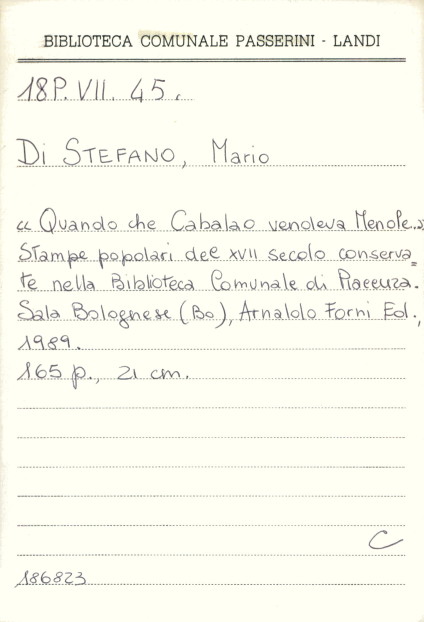 BIBLIOTECA COMUNALE PASSERINI - LANDI
18P. VII. 45.
DI STEFANO, Mario
« Quando che Cabalao vendeva Menole..»
Stampe popolari del XVII secolo conserva=
te nella Biblioteca Comunale di Piacenza.
Sala Bolognese (Bo), Arnaldo Forni Ed.,
1989.
165 p., 21 cm.
C
186823